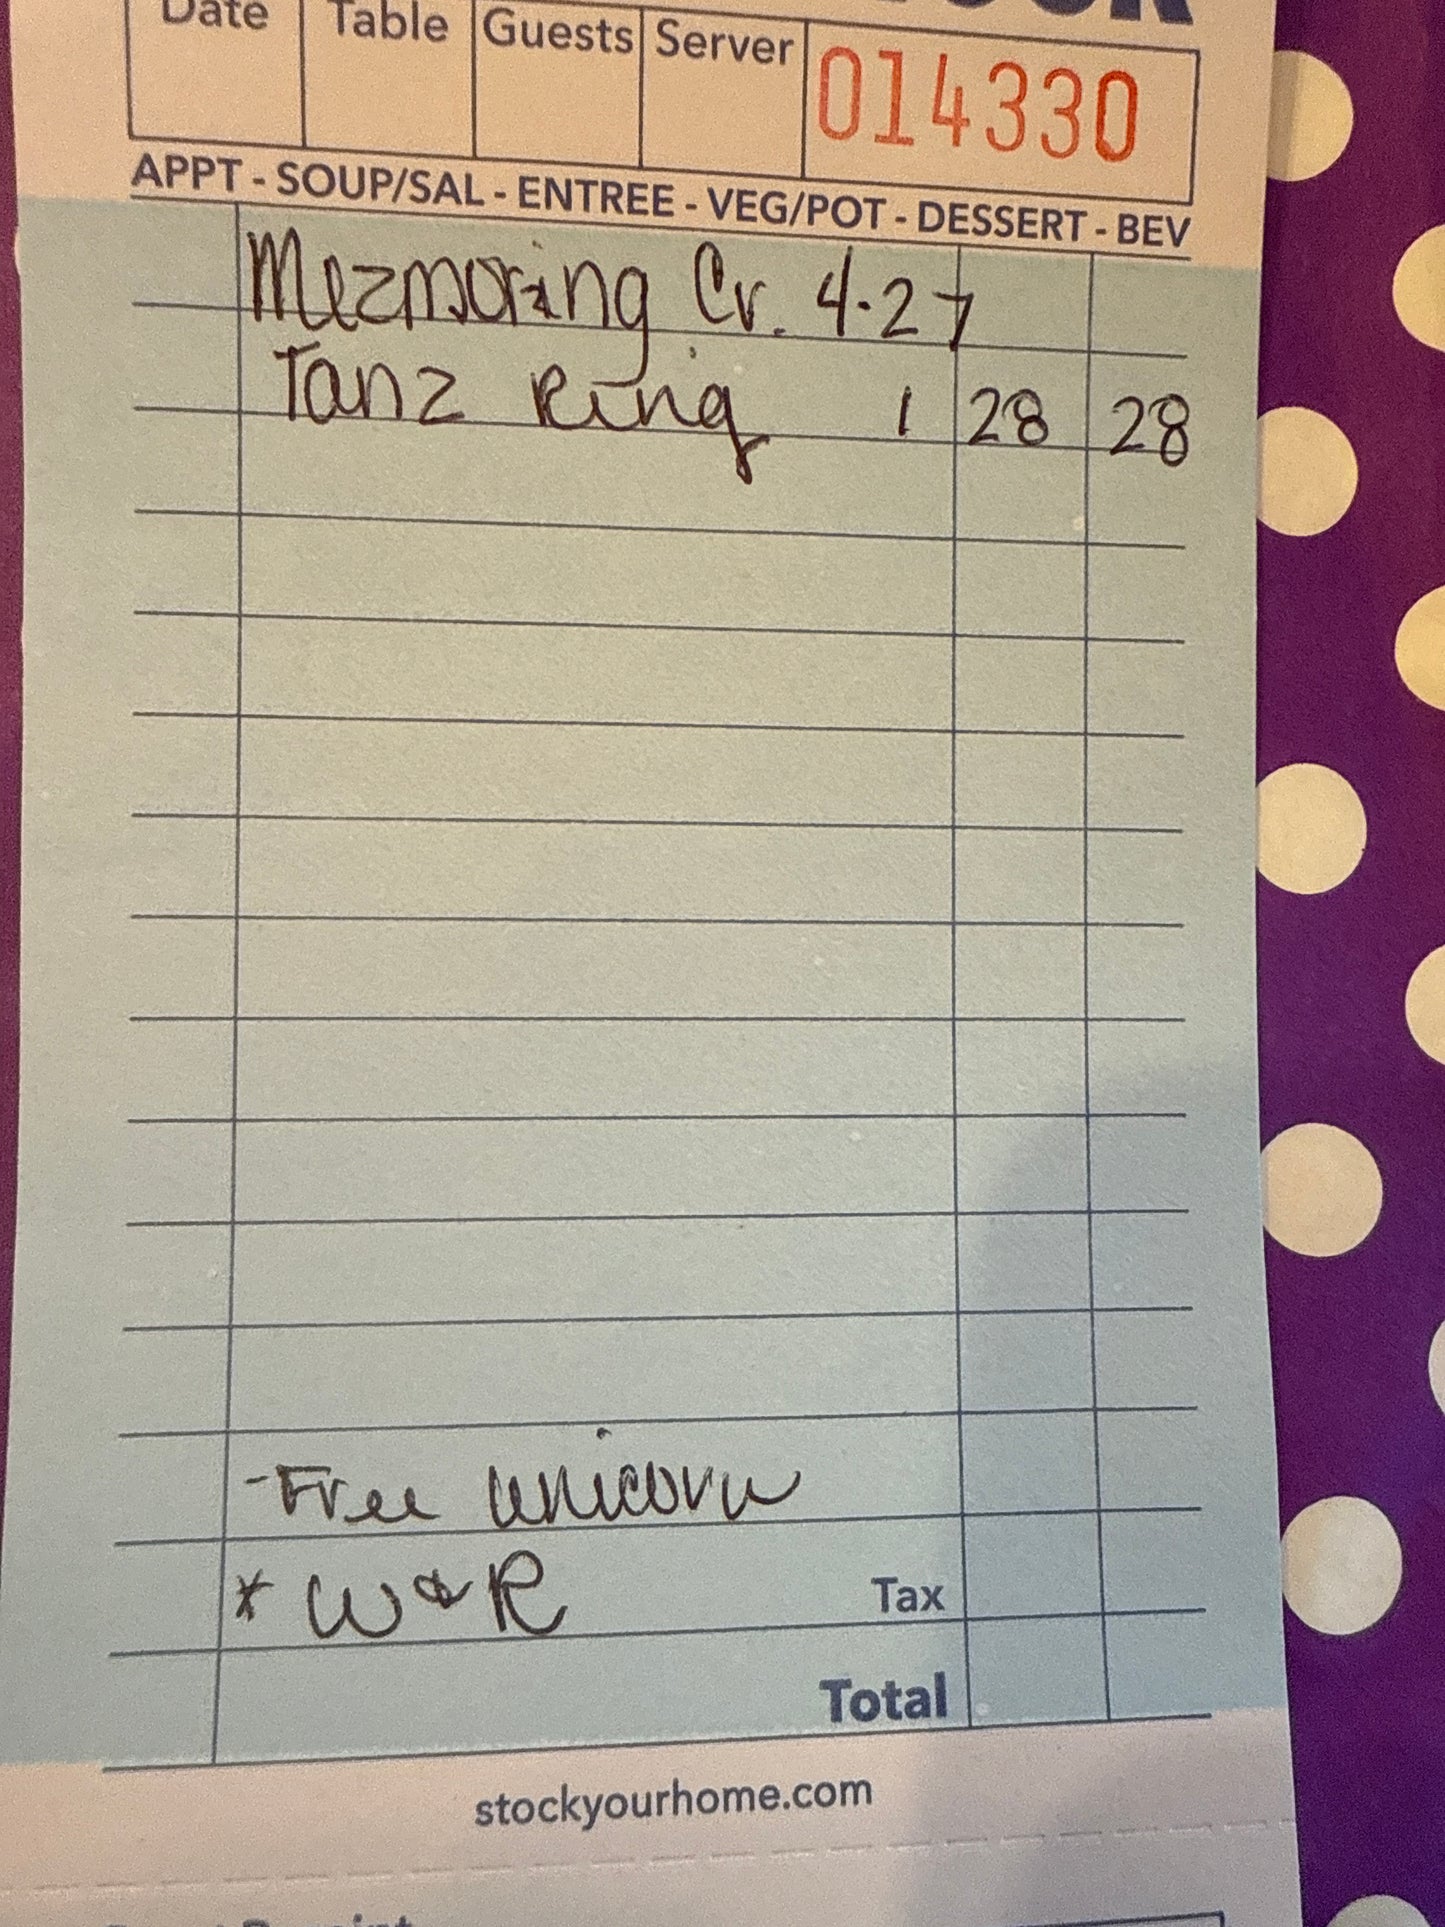 Date Table Guests Server 014330
APPT - SOUP/SAL - ENTREE - VEG/POT - DESSERT - BEV
Mezmorizing Cr. 4.27
Tanz Ring 1 28 28
-Free unicorn
* W & R Tax
Total
stockyourhome.com